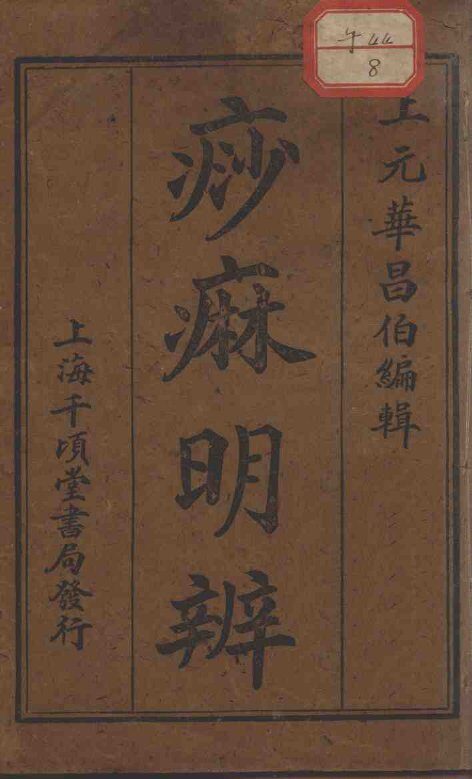 午44
8
上元華昌伯編輯
痧痳明辨
上海千頃堂書局發行